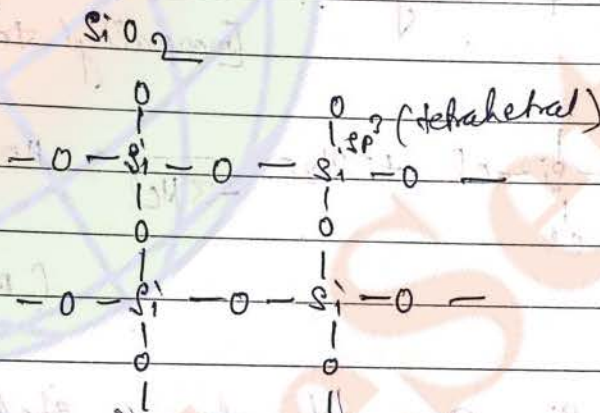 SiO2
O O
| | sp3 (tetrahetral)
– O – Si – O – Si – O –
| |
O O
| |
– O – Si – O – Si – O –
| |
O O
| |